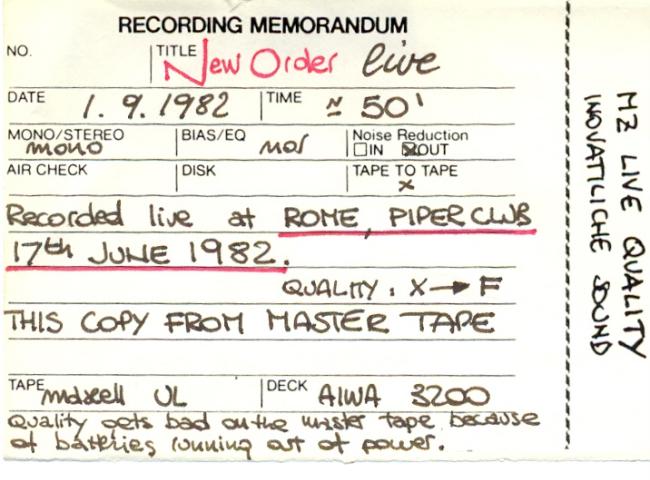 RECORDING MEMORANDUM
NO. TITLE New Order live
DATE 1.9.1982 TIME ≈ 50'
MONO/STEREO mono BIAS/EQ nor Noise Reduction ☐IN ☒OUT
AIR CHECK DISK TAPE TO TAPE x
Recorded live at ROME, PIPER CLUB
17th JUNE 1982.
QUALITY: X → F
THIS COPY FROM MASTER TAPE
TAPE maxell UL DECK AIWA 3200
Quality gets bad on the master tape because
of batteries running out of power.
MZ LIVE QUALITY
SOUND